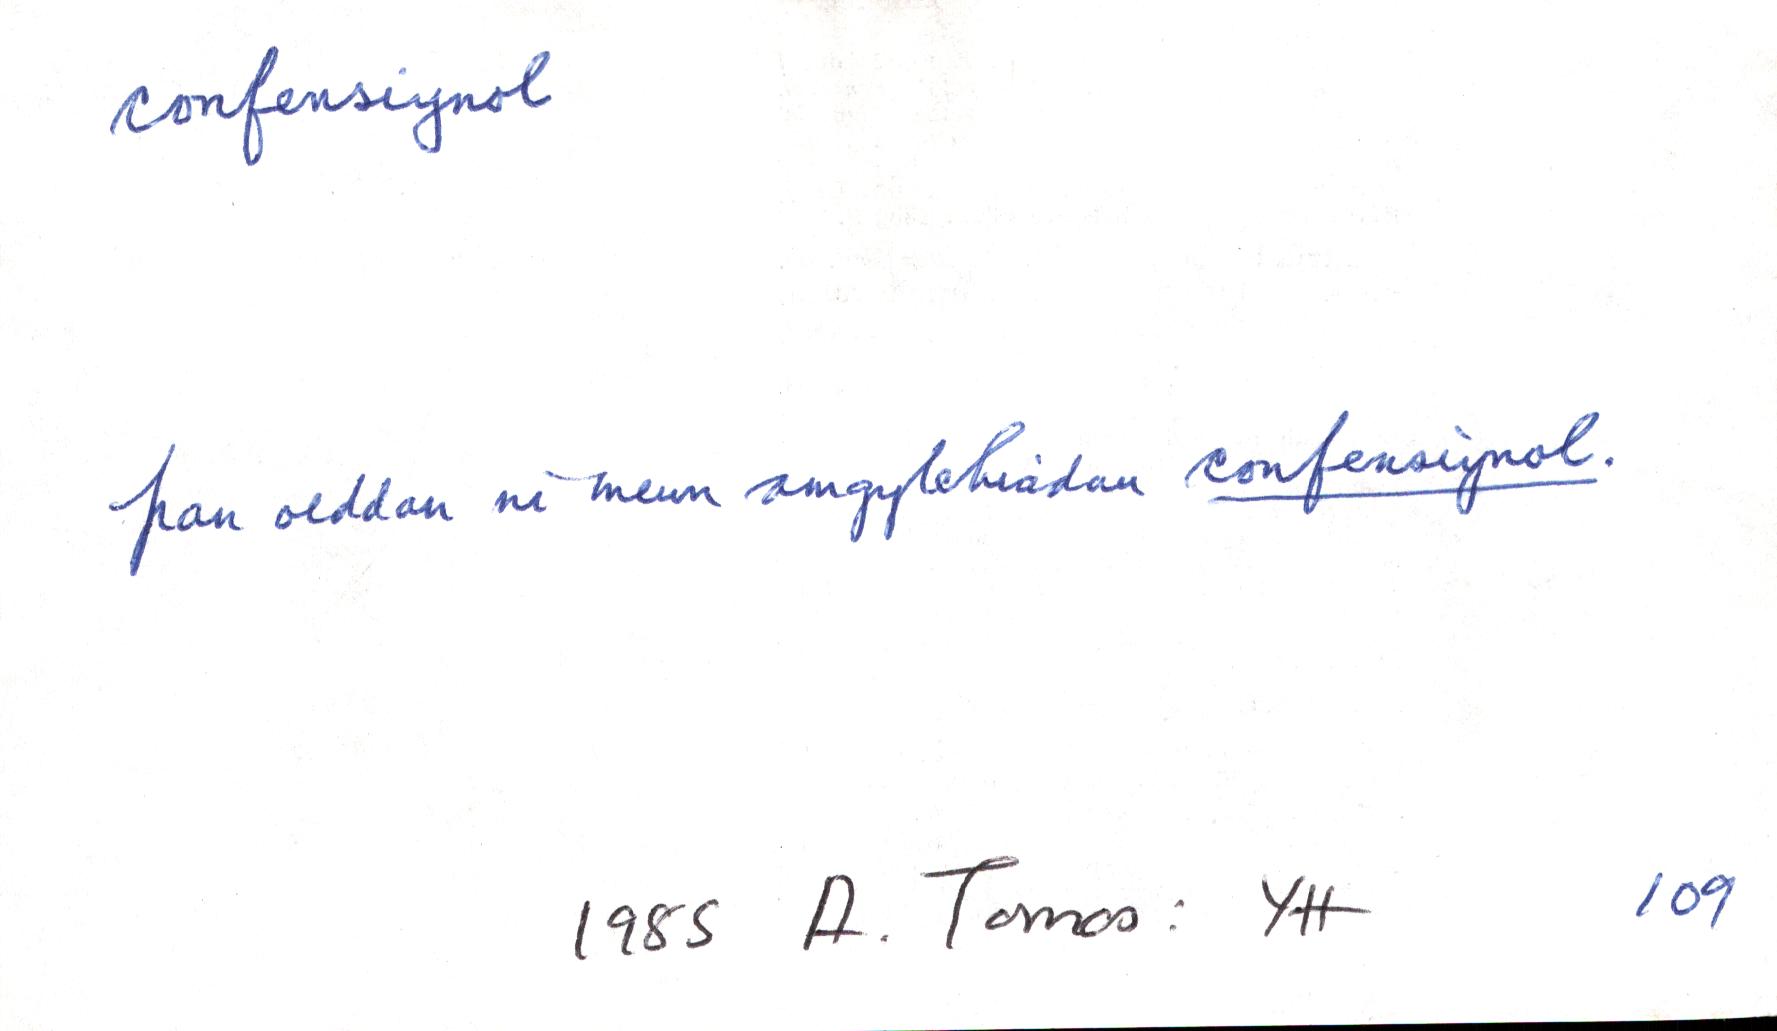 confensiynol
pan oeddan ni mewn amgylchiadau confensiynol.
1985 A. Tomos: YH 109